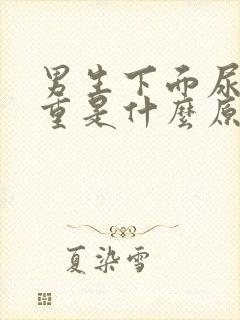 男生下面尿
重是什麼原
夏染雪